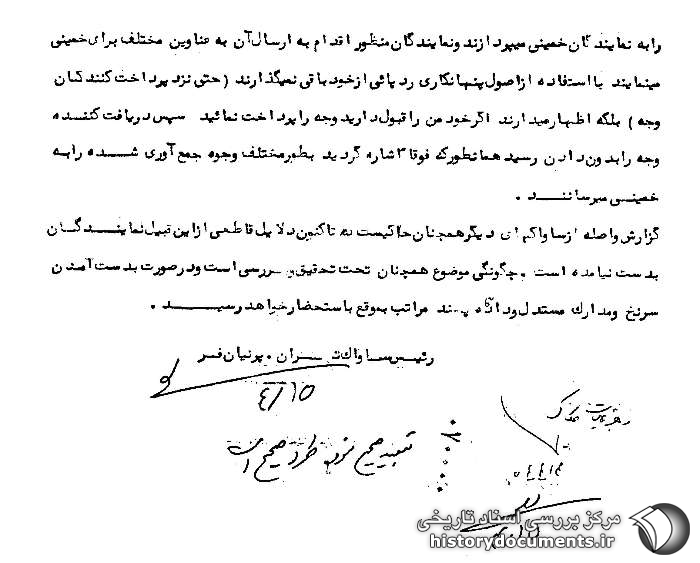 را به نمایندگان خمینی میپردازند و نمایندگان منظور اقدام به ارسال آن به عناوین مختلف برای خمینی
مینمایند با استفاده از اصول پنهانکاری رد پائی از خود باقی نمیگذارند (حتی نزد پرداخت کنندگان
وجه) بلکه اظهار میدارند اگر خود من را قبول دارید وجه را پرداخت نمائید سپس دریافت کننده
وجه را بدون دادن رسید همانطور که فوقا اشاره گردید بطور مختلف وجوه جمع آوری شده را به
خمینی میرسانند .
گزارش واصله از ساواکهای دیگر همچنان حاکیست که تاکنون دلایل قاطعی از این قبیل نمایندگان
بدست نیامده است . چگونگی موضوع همچنان تحت تحقیق و بررسی است و در صورت بدست آمدن
سرنخ ومدارك مستدل و دادگاه پسند مراتب بموقع باستحضار خواهد رسید .
رئیس ساواك تهران . پرنیان فر
٤/١٥
مرکز بررسی اسناد تاریخی
historydocuments.ir